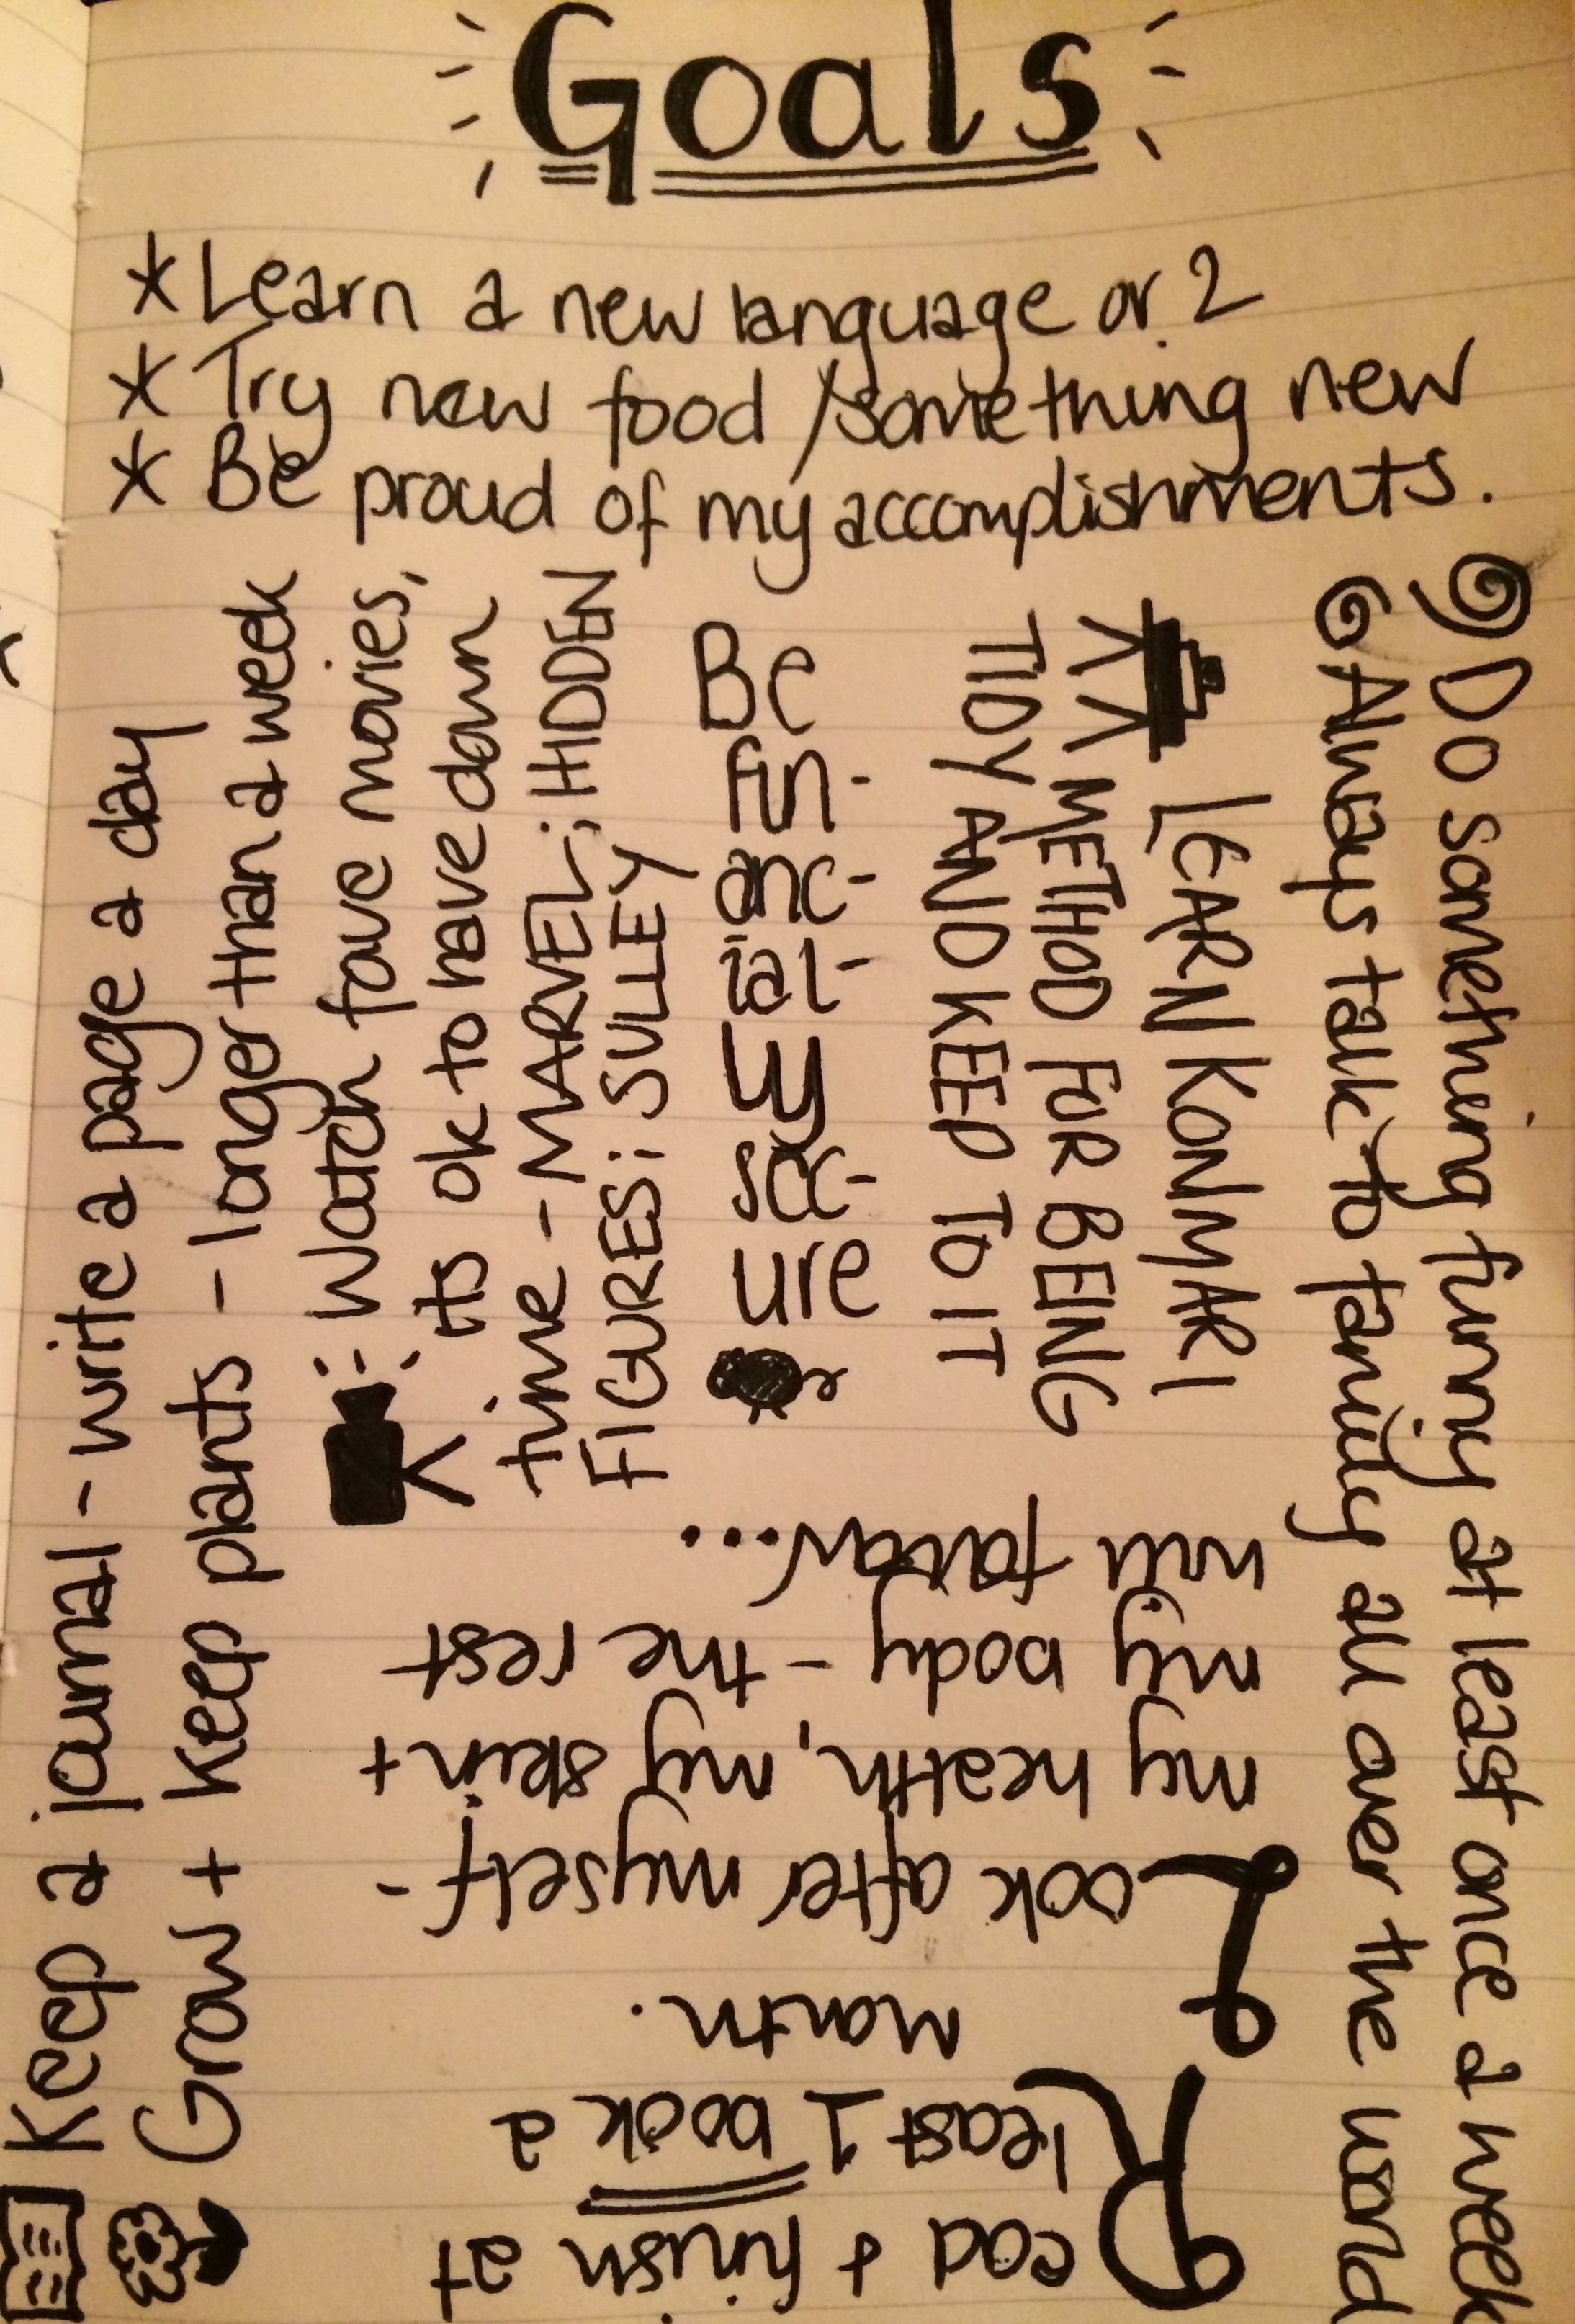 Goals
* Learn a new language or 2
* Try new food / something new
* Be proud of my accomplishments.
Do something funny at least once a week
Always talk to family all over the world
LEARN KONMARI
METHOD FOR BEING
TIDY AND KEEP TO IT
Be
fin-
anc-
ial-
ly
sec-
ure
Read + finish at
least 1 book a
month.
Look after myself -
my health, my skin +
my body - the rest
will follow...
Keep a journal - write a page a day
Grow + keep plants - longer than a week
Watch fave movies,
its ok to have down
time - MARVEL; HIDDEN
FIGURES; SULLEY